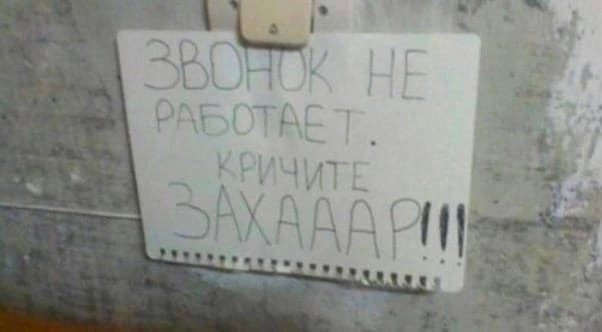 ЗВОНОК НЕ
РАБОТАЕТ.
КРИЧИТЕ
ЗАХАААР!!!